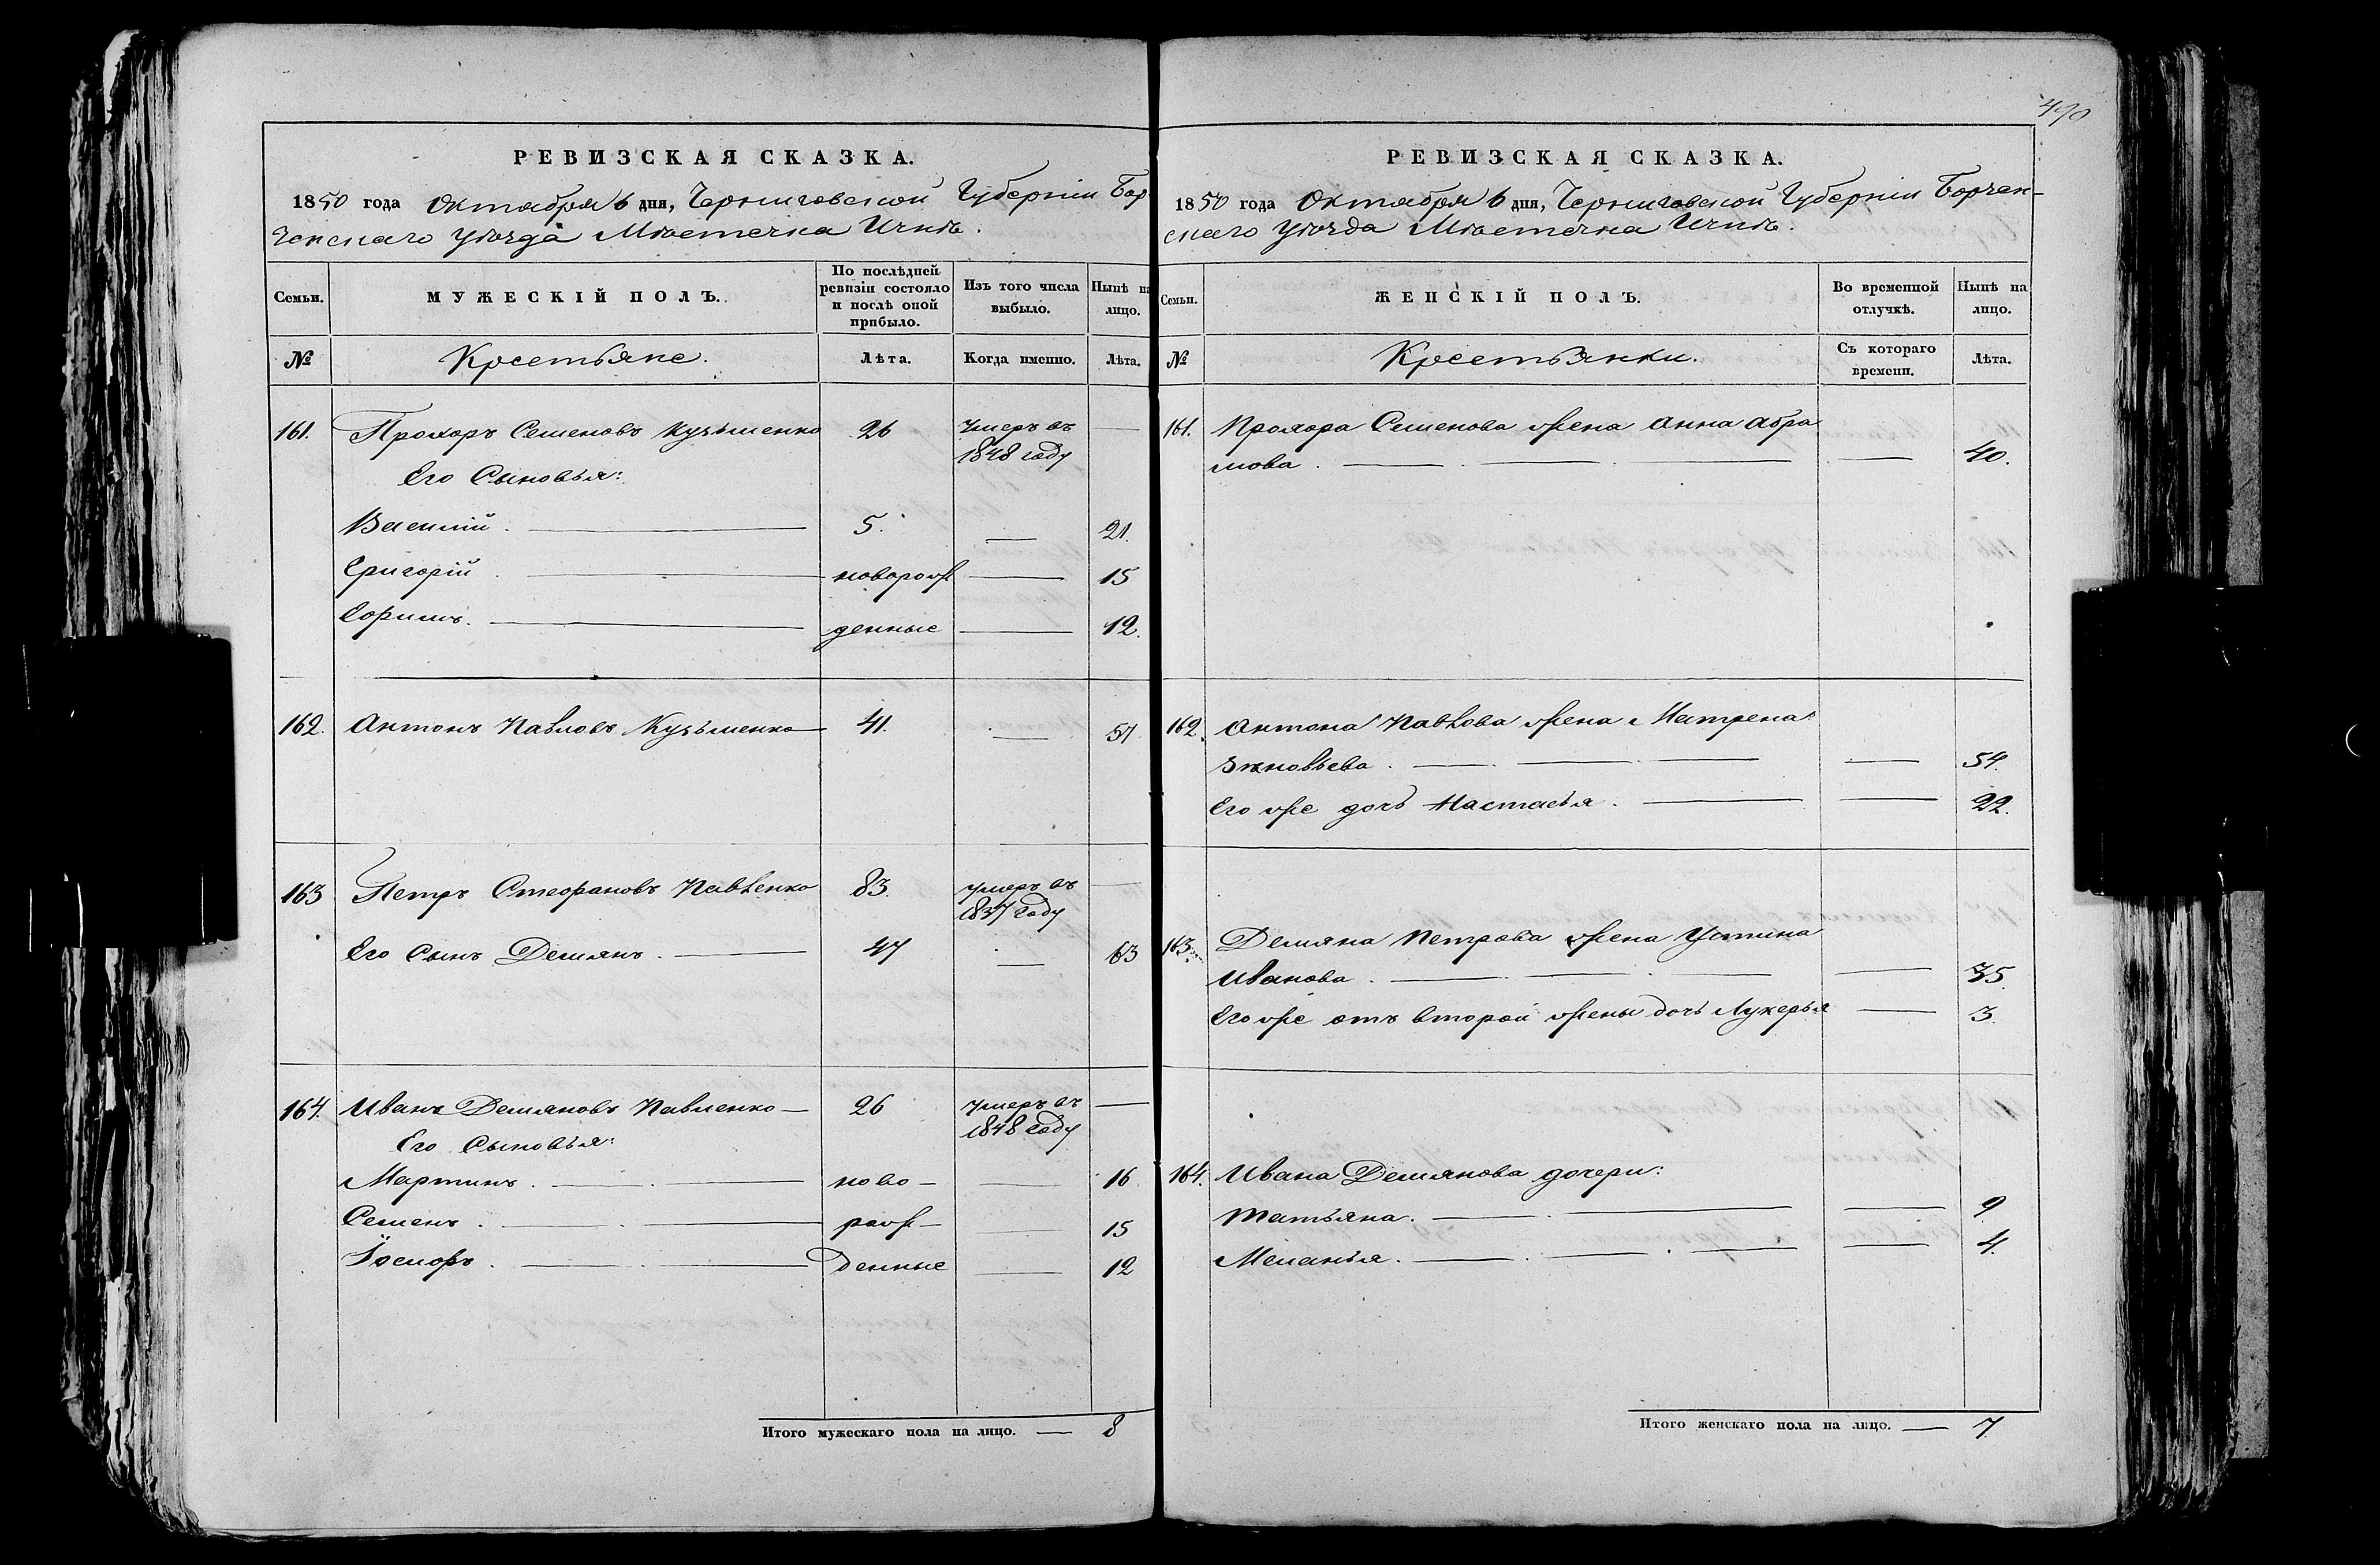 РЕВИЗСКАЯ СКАЗКА.
1850 года Октября 6 дня, Черниговской Губерніи Бор
зенскаго Уѣзда Мѣстечка Ични.
Семьи. МУЖЕСКІЙ ПОЛЪ. По послѣдней ревизіи состояло и послѣ оной прибыло. Изъ того числа выбыло. Нынѣ на лицо.
№ Крестьяне. Лѣта. Когда именно. Лѣта.
161. Прохоръ Семеновъ Кузьменко 26 Умеръ въ —
1848 году
Его Сыновья:
Василій. — 5. — 21.
Григорій. — новорож — 15
Ефимъ. — денные — 12.
162. Антонъ Павловъ Кузьменко — 41. — 57
163 Петръ Стефановъ Павленко 83. умеръ въ —
1837 году
Его Сынъ Демянъ. — 47 — 63
164. Иванъ Демяновъ Павленко — 26 Умеръ въ —
1848 году
Его Сыновья:
Мартинъ. — ново — — 16
Семенъ. — рож — — 15
— денные — 12
Итого мужескаго пола на лицо. — 8
490
РЕВИЗСКАЯ СКАЗКА.
1850 года Октября 6 дня, Черниговской Губерніи Борзен-
скаго Уѣзда Мѣстечка Ични.
Семьи. ЖЕНСКІЙ ПОЛЪ. Во временной отлучкѣ. Нынѣ на лицо.
№ Крестьянки. Съ котораго времени. Лѣта.
161. Прохора Семенова жена Анна Абра
мова. — — 40.
162. Антона Павлова жена Матрена
Зиновьева. — — 54.
Его же дочь Настасья. — — 22.
163. Демяна Петрова жена Устина
Иванова. — — 35.
Его же отъ второй жены дочь Лукерья — 3.
164. Ивана Демянова дочери:
Татьяна. — — 9
Меланья. — — 4.
Итого женскаго пола на лицо. — 7